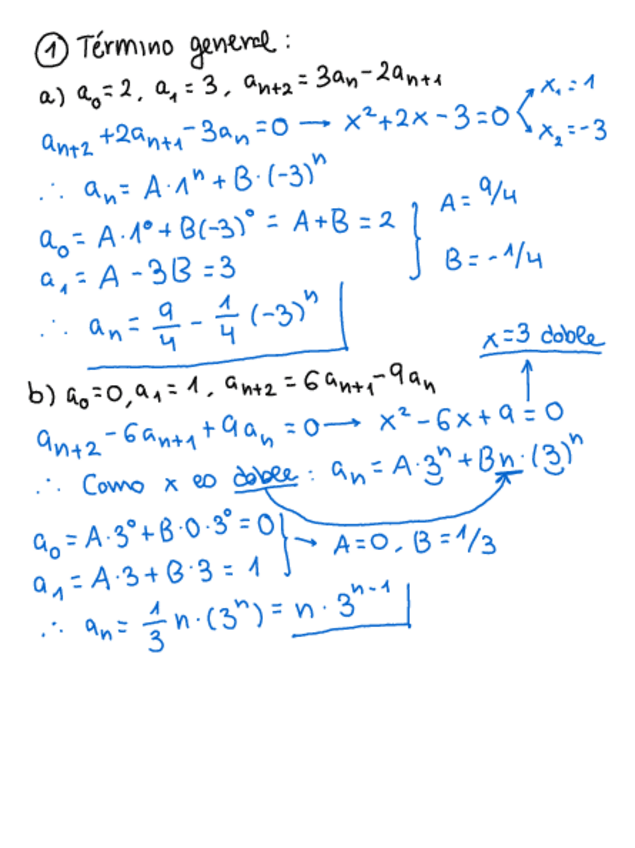 ① Término general:
a) a₀=2, a₁=3, aₙ₊₂=3aₙ-2aₙ₊₁
aₙ₊₂+2aₙ₊₁-3aₙ=0 → x²+2x-3=0 x₁=1
x₂=-3
∴ aₙ=A·1ⁿ+B·(-3)ⁿ
a₀=A·1⁰+B(-3)⁰=A+B=2 } A=9/4
a₁=A-3B=3 B=-1/4
∴ aₙ=9/4-1/4(-3)ⁿ
x=3 doble
b) a₀=0, a₁=1, aₙ₊₂=6aₙ₊₁-9aₙ
aₙ₊₂-6aₙ₊₁+9aₙ=0 → x²-6x+9=0
∴ Como x es doble: aₙ=A·3ⁿ+Bn·(3)ⁿ
a₀=A·3⁰+B·0·3⁰=0 } → A=0, B=1/3
a₁=A·3+B·3=1
∴ aₙ=1/3n·(3ⁿ)=n·3ⁿ⁻¹